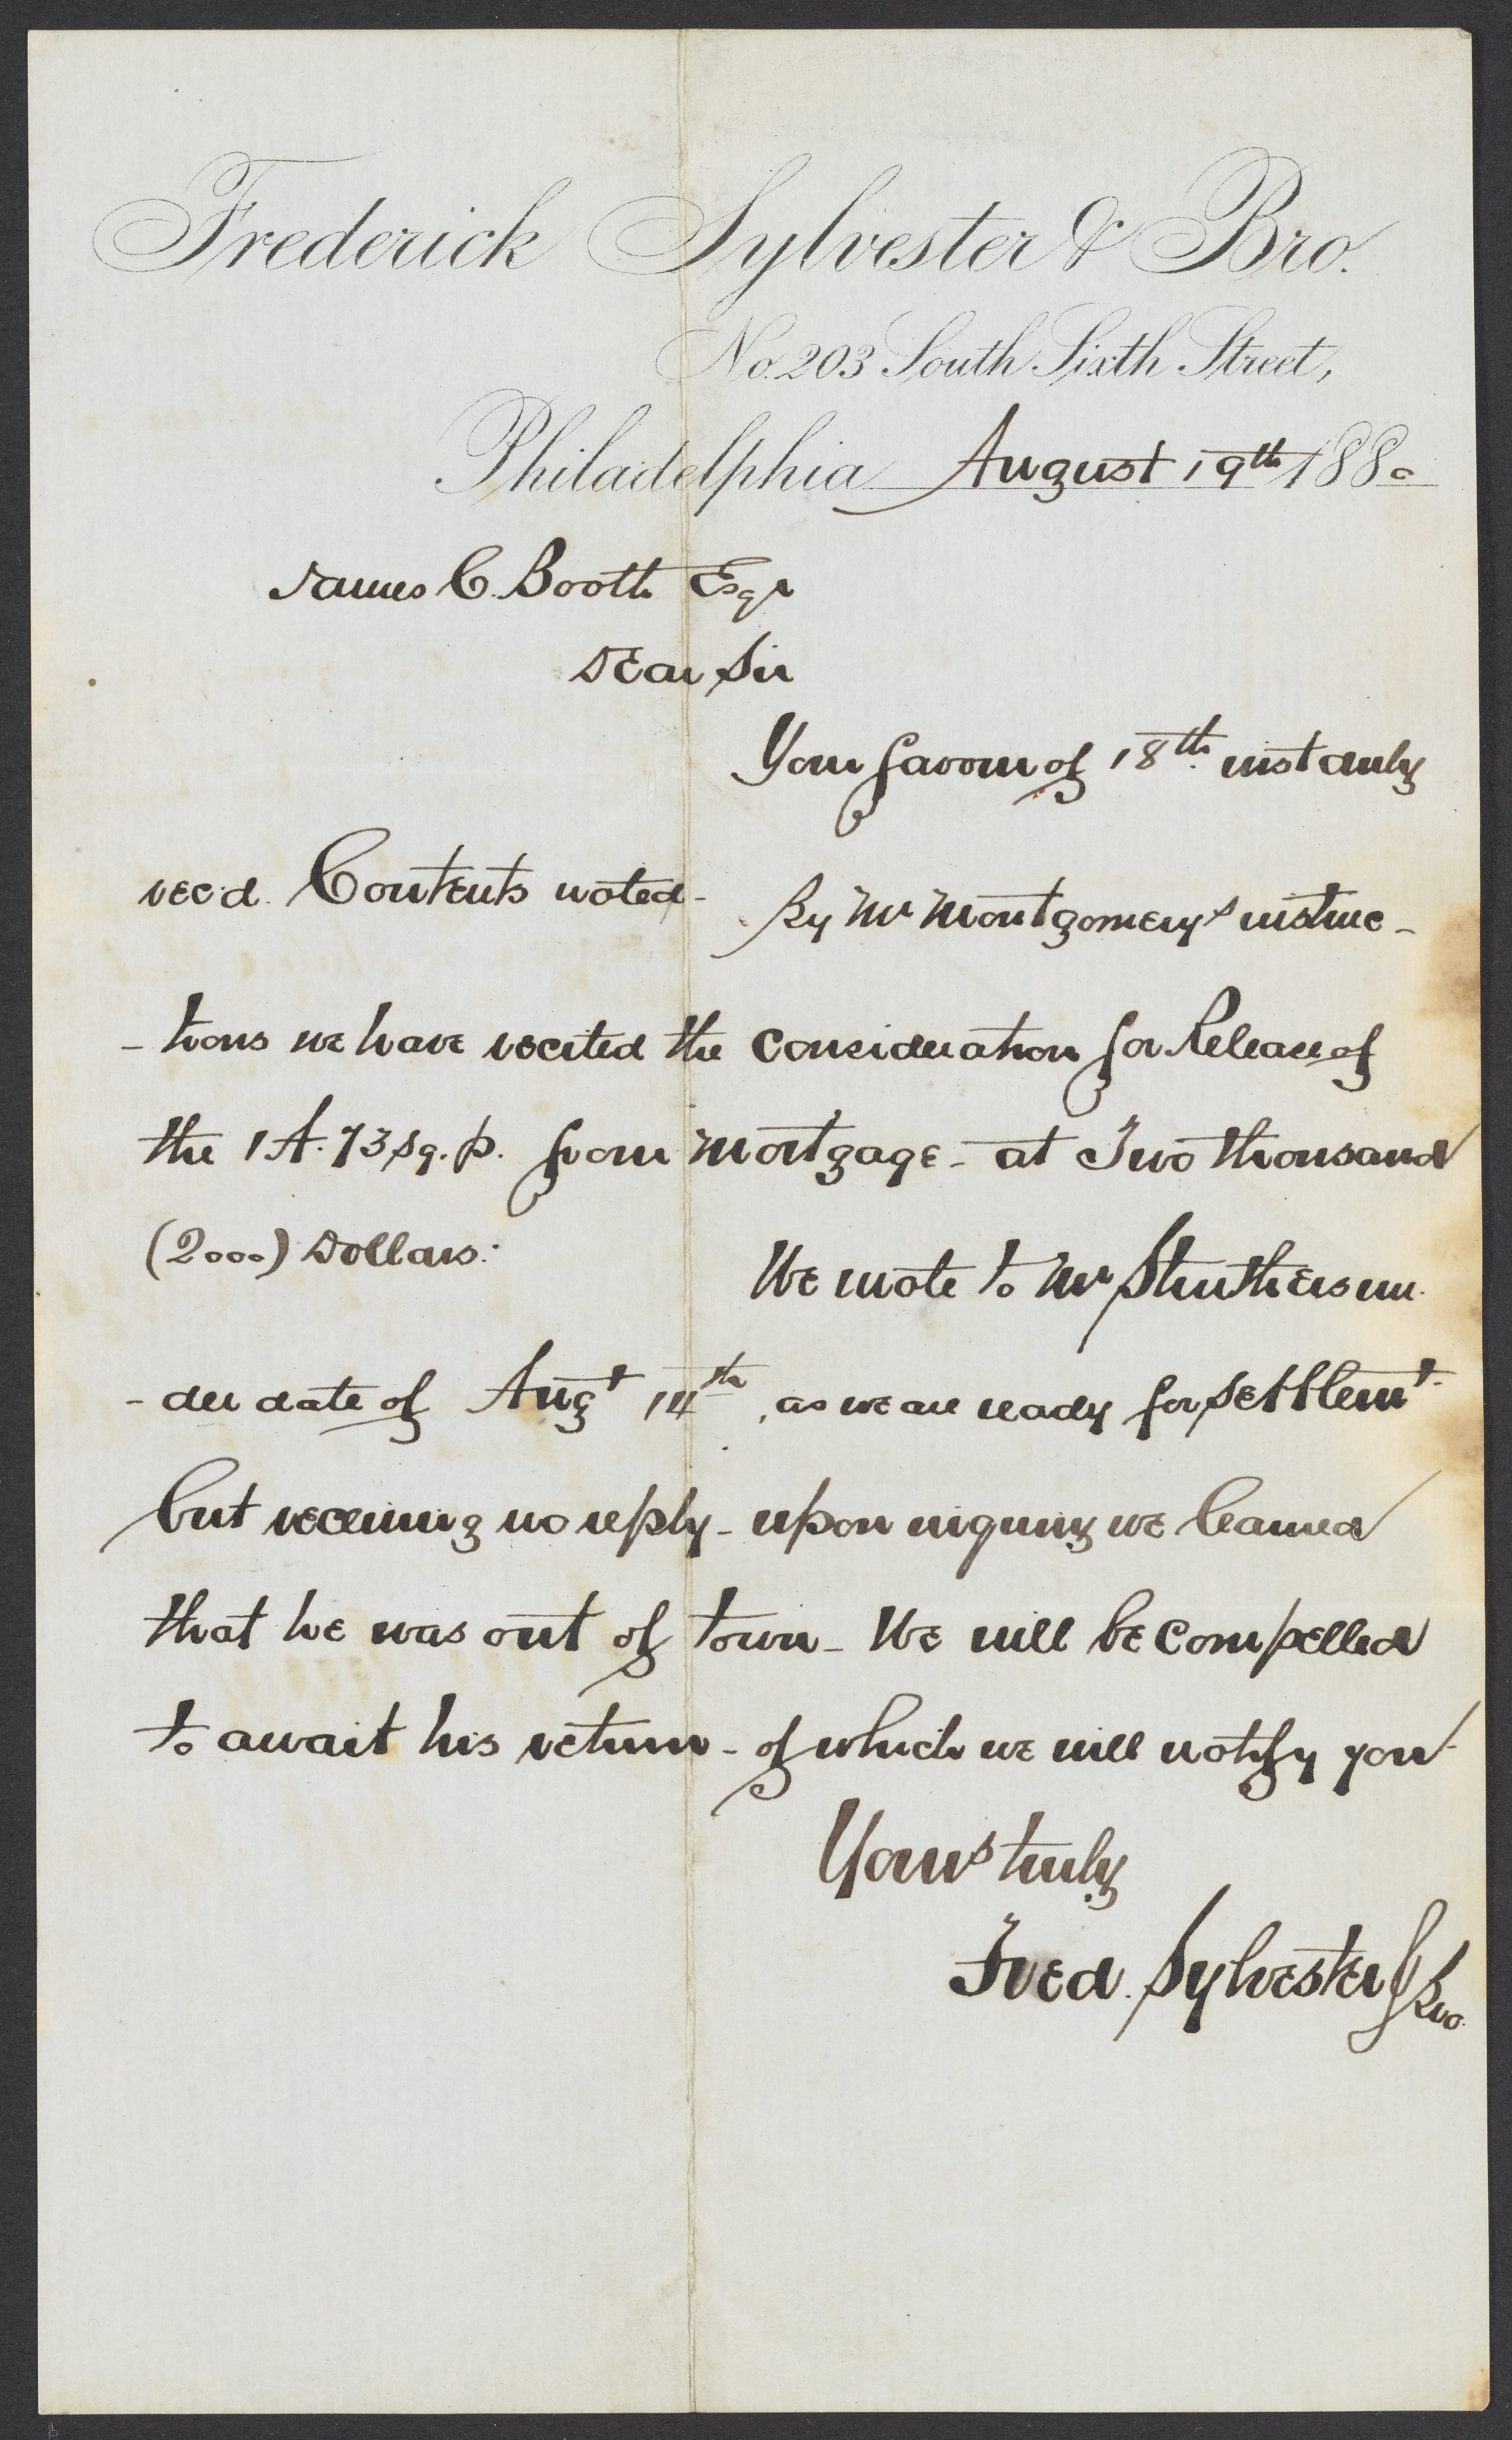 Frederick Sylvester & Bro.
No. 203 South Sixth Street,
Philadelphia August 19th 1880
James C. Booth Esqr
Dear Sir
Your favour of 18th inst duly
rec'd. Contents noted -
By Mr Montgomery's instruc -
- tions we have recited the consideration for Release of
the 1 A. 73 sq. p. from mortgage - at Two thousand
(2000) Dollars.
We wrote to Mr Struthers un -
- der date of Augt 14th, as we are ready for settlemt.
but receiving no reply - upon inquiry we learned
that he was out of town - We will be compelled
to await his return - of which we will notify you -
Yours truly
Fred. Sylvester & Bro.